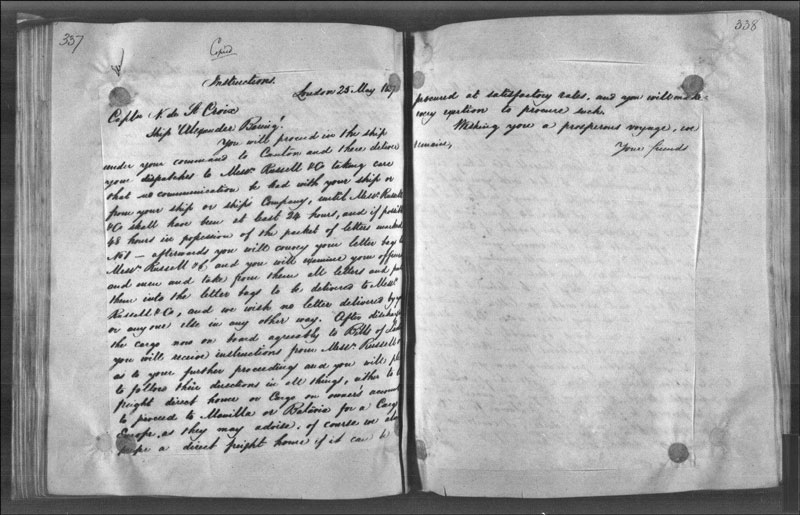 337
Copied
Instructions.
London 25 May 18
Captn N. de St Croix
Ship "Alexander Baring".
You will proceed in the ship
under your command to Canton and there deliver
your dispatches to Messrs Russell & Co taking care
that no communication be had with your ship or
from your ship or ship's Company, until Messrs Russell
& Co shall have been at least 24 hours, and if possible
48 hours in possession of the packet of letters marked
No 1 — afterwards you will convey your letter bag to
Messrs Russell & Co, and you will examine your officers
and men and take from them all letters and put
them into the letter bags to be delivered to Messrs
Russell & Co, and we wish no letter delivered by you
or any one else in any other way. After discharging
the cargo now on board agreeably to Bills of
you will receive instructions from Messrs Russell &
as to your further proceedings and you will
to follow their directions in all things, either to
freight direct home or Cargo on owner's account
to proceed to Manilla or Batavia for a Cargo
Europe, as they may advise. of course we
a direct freight home if it can be
338
procured at satisfactory rates, and you will make
every exertion to procure such.
Wishing you a prosperous voyage, we
remain,
Your friends